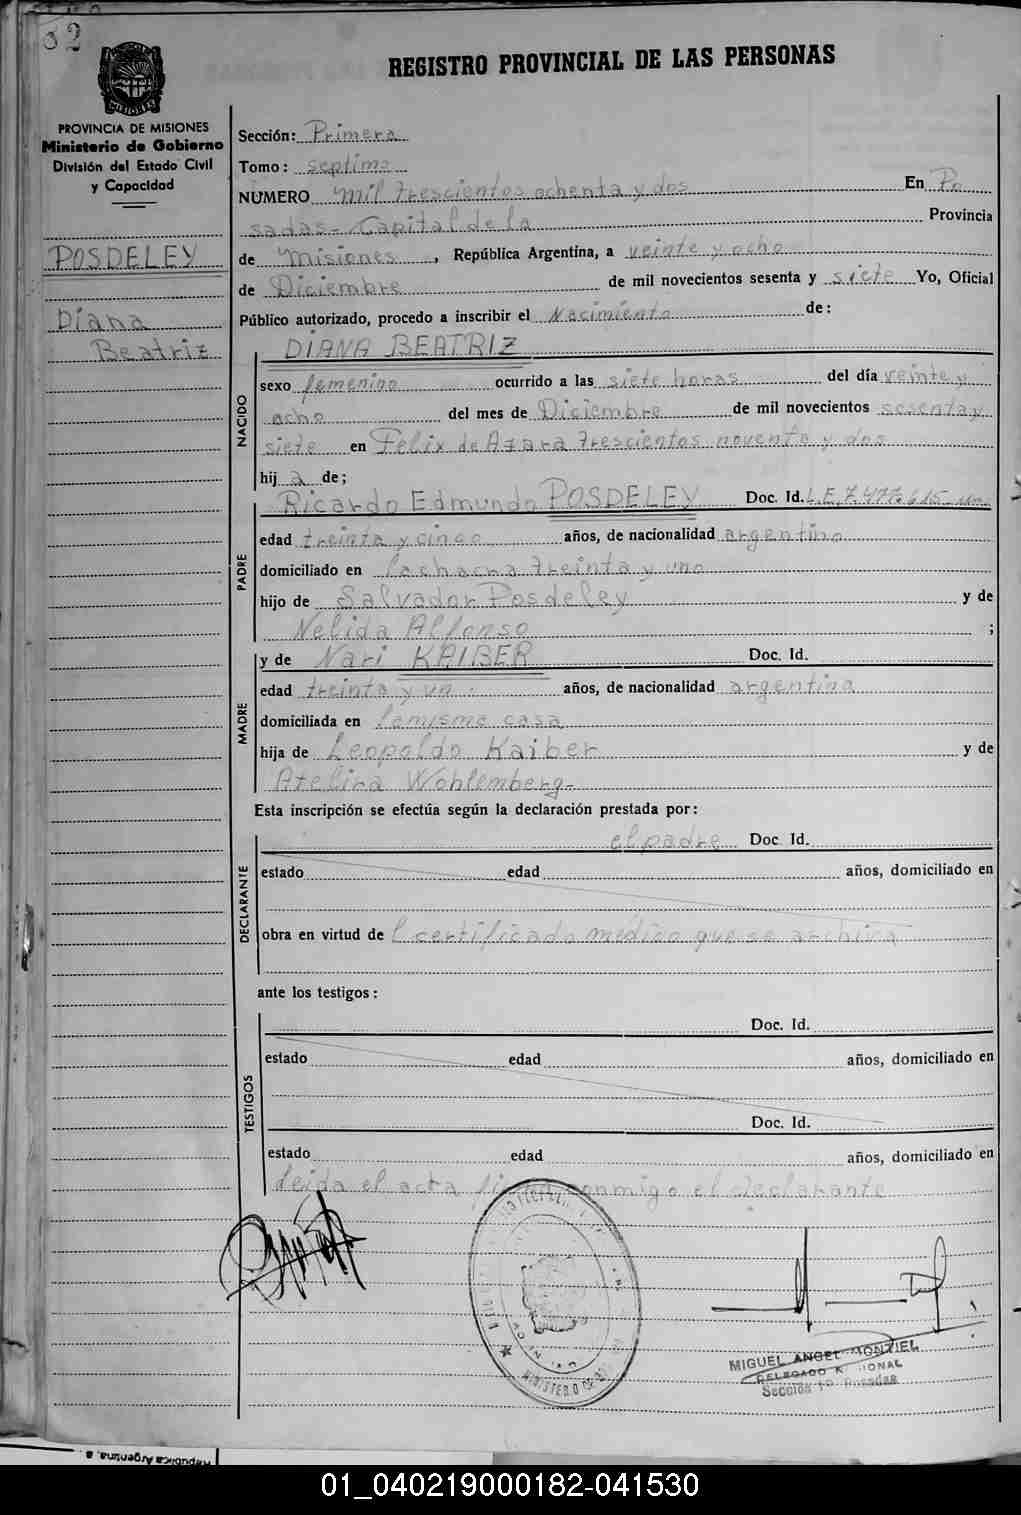 82
REGISTRO PROVINCIAL DE LAS PERSONAS
PROVINCIA DE MISIONES
Ministerio de Gobierno
División del Estado Civil
y Capacidad
POSDELEY
Diana
Beatriz
Sección: Primera
Tomo: septimo
NUMERO mil trescientos ochenta y dos En Po
sadas - Capital de la Provincia
de Misiones, República Argentina, a veinte y ocho
de Diciembre de mil novecientos sesenta y siete Yo, Oficial
Público autorizado, procedo a inscribir el Nacimiento de:
NACIDO
DIANA BEATRIZ
sexo femenino ocurrido a las siete horas del día veinte y
ocho del mes de Diciembre de mil novecientos sesenta y
siete en Felix de Azara trescientos noventa y dos
hij a de;
PADRE
Ricardo Edmundo POSDELEY Doc. Id. L.E. 7.477.615
edad treinta y cinco años, de nacionalidad argentino
domiciliado en la chacra treinta y uno
hijo de Salvador Posdeley y de
Nelida Alfonso ;
MADRE
y de Nari KAIBER Doc. Id.
edad treinta y un años, de nacionalidad argentina
domiciliada en la misma casa
hija de Leopoldo Kaiber y de
Atelina Wohlemberg-
Esta inscripción se efectúa según la declaración prestada por:
DECLARANTE
el padre Doc. Id.
estado edad años, domiciliado en
obra en virtud de l certificado médico que se archiva
ante los testigos:
TESTIGOS
Doc. Id.
estado edad años, domiciliado en
Doc. Id.
estado edad años, domiciliado en
Leida el acta firma conmigo el declarante
MINISTERIO DE
MIGUEL ANGEL MONTIEL
DELEGADO
Sección 1ª Posadas
República Argentina, a
01_040219000182-041530